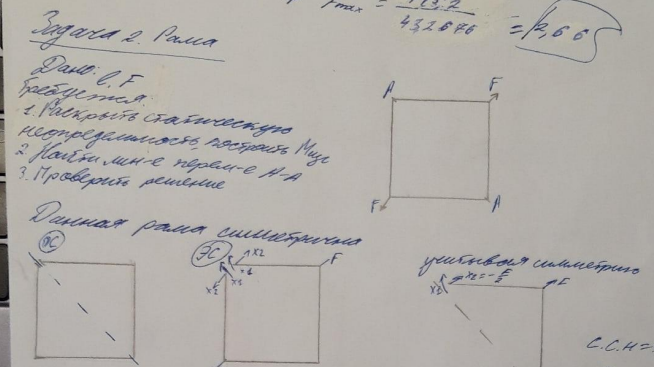 max = 
43,2676
= 2,66
Задача 2. Рама
Дано: l, F
Требуется:
1. Раскрыть статическую
неопределимость, построить Mизг
2. Найти лин-е перем-е А-А
3. Проверить решение
A F
F A
Данная рама симметрична
ОС
ЭС
X2
X1
X3
X2
F
учитывая симметрию
X2 = -F/2
X3
F
С.С.Н =